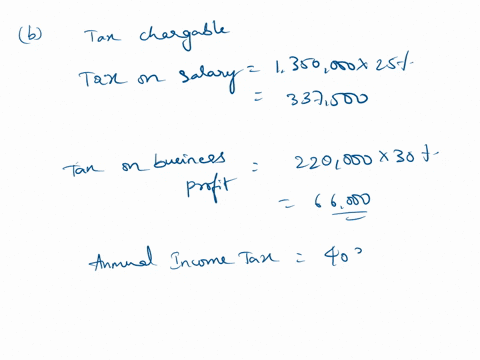 (b) Tax chargable
Tax on salary = 1,350,000 × 25%
= 337,500
Tax on business = 220,000 × 30%
profit
= 66,000
Annual Income Tax = 40